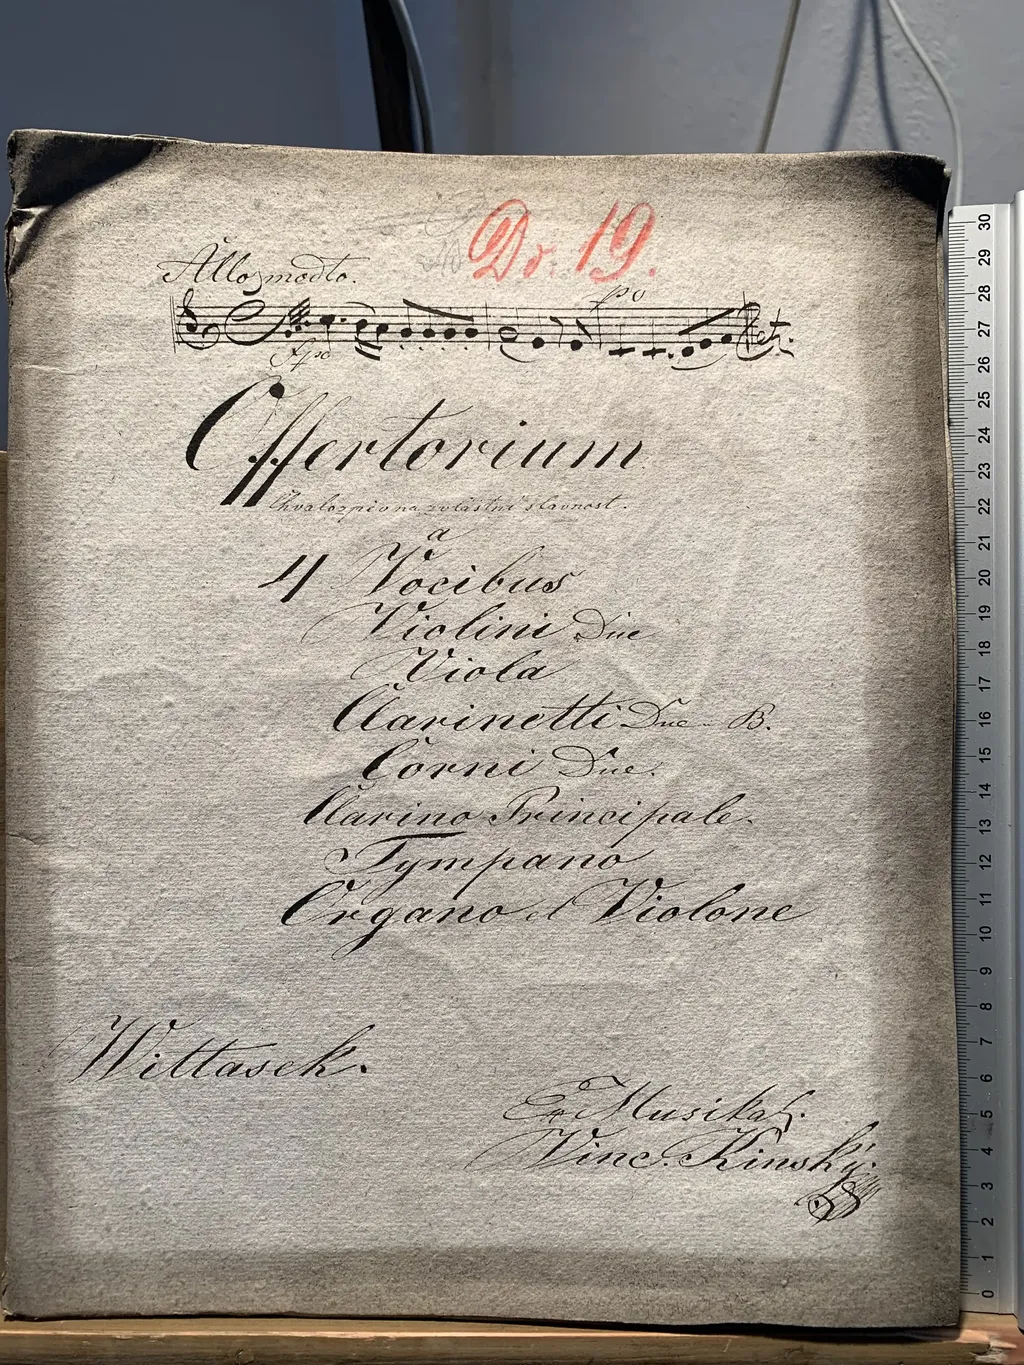 No. 19.
Allo modto.
fpo
fpo
Offertorium
Chvalozpiv na zvlastni slavnost.
a
4 Vocibus
Violini Due
Viola
Clarinetti Due B.
Corni Due.
Clarino Principale.
Tympano
Organo et Violone
Wittasek.
Ex Musikal.
Vinc. Kinský.
30
29
28
27
26
25
24
23
22
21
20
19
18
17
16
15
14
13
12
11
10
9
8
7
6
5
4
3
2
1
0